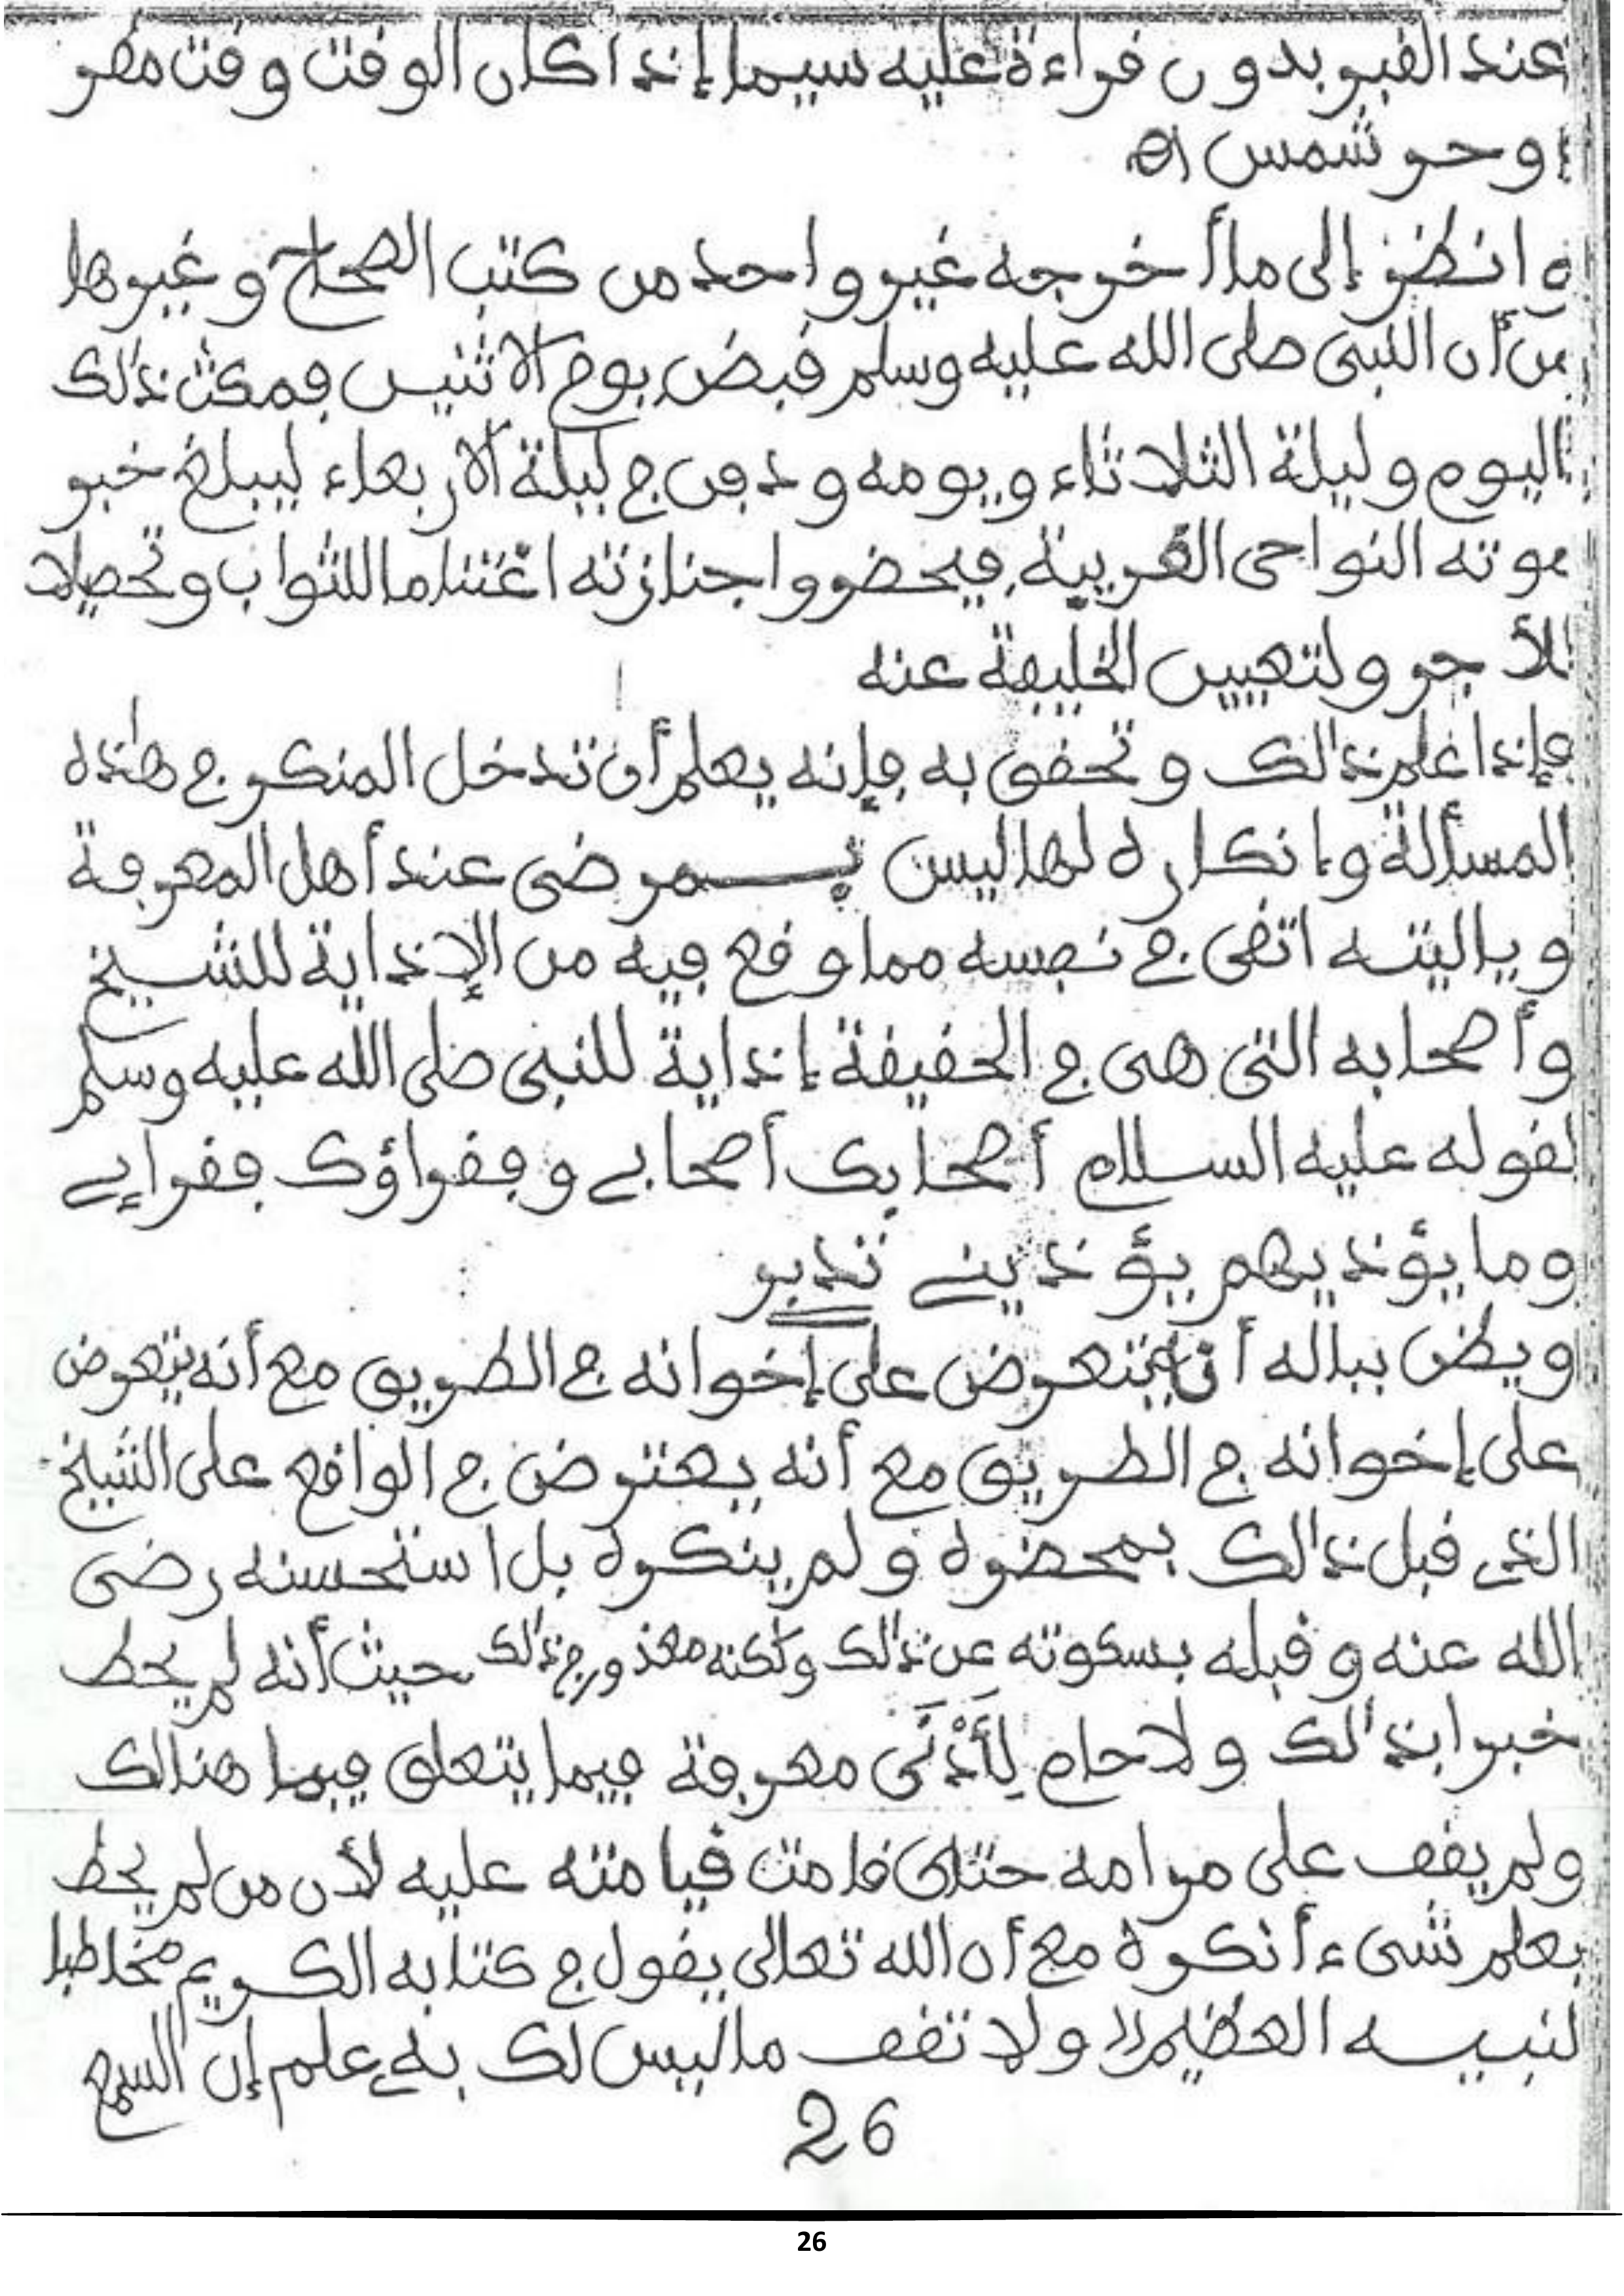 عند القبر بدون قراءة عليه سيما إذا كان الوقت وقت مطر
أو حر شمس اه
وانظر إلى ما أخرجه غير واحد من كتب الصحاح وغيرها
من أن النبي صلى الله عليه وسلم قبض يوم الاثنين فمكث ذلك
اليوم وليلة الثلاثاء ويومه ودفن في ليلة الأربعاء ليبلغ خبر
موته النواحي القريبة فيحضروا جنازته اغتناما للثواب وتحصيلا
للأجر ولتعيين الخليفة عنه
فإذا علم ذلك وتحقق به فإنه يعلم أن تدخل المنكر في هذه
المسألة وإنكاره لها ليس بمرضى عند أهل المعرفة
وياليته اتقى في نفسه مما وقع فيه من الإذاية للشيخ
وأصحابه التي هي في الحقيقة إذاية للنبي صلى الله عليه وسلم
لقوله عليه السلام أصحابك أصحابي وفقراؤك فقرائي
وما يؤذيهم يؤذيني تدبر
ويظن بباله أن يتعرض على إخوانه في الطريق مع أنه يتعرض
على إخوانه في الطريق مع أنه يعترض في الواقع على الشيخ
الذي قبل ذلك بمحضره ولم ينكره بل استحسنه رضي
الله عنه وقبله بسكوته عن ذلك ولكنه معذور في ذلك حيث أنه لم يحط
خبرا بذلك ولا حام لِأَدْنَى معرفة فيما يتعلق فيما هنالك
ولم يقف على مرامه حتى قامت قيامته عليه لأن من لم يحط
بعلم شيء أنكره مع أن الله تعالى يقول في كتابه الكريم مخاطبا
لنبيه العظيم (( ولا تقف ما ليس لك به علم إن السمع
26
26